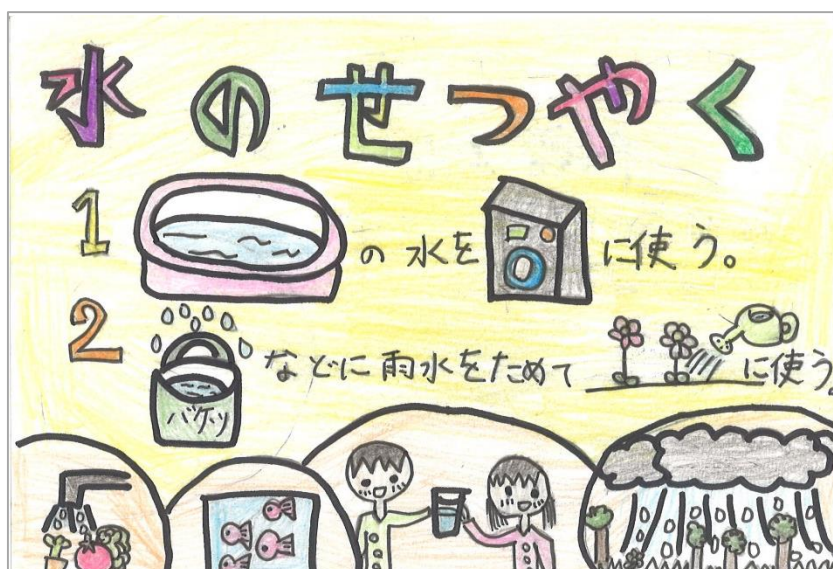 水のせつやく
1 の水を に使う。
2 バケツ などに雨水をためて に使う